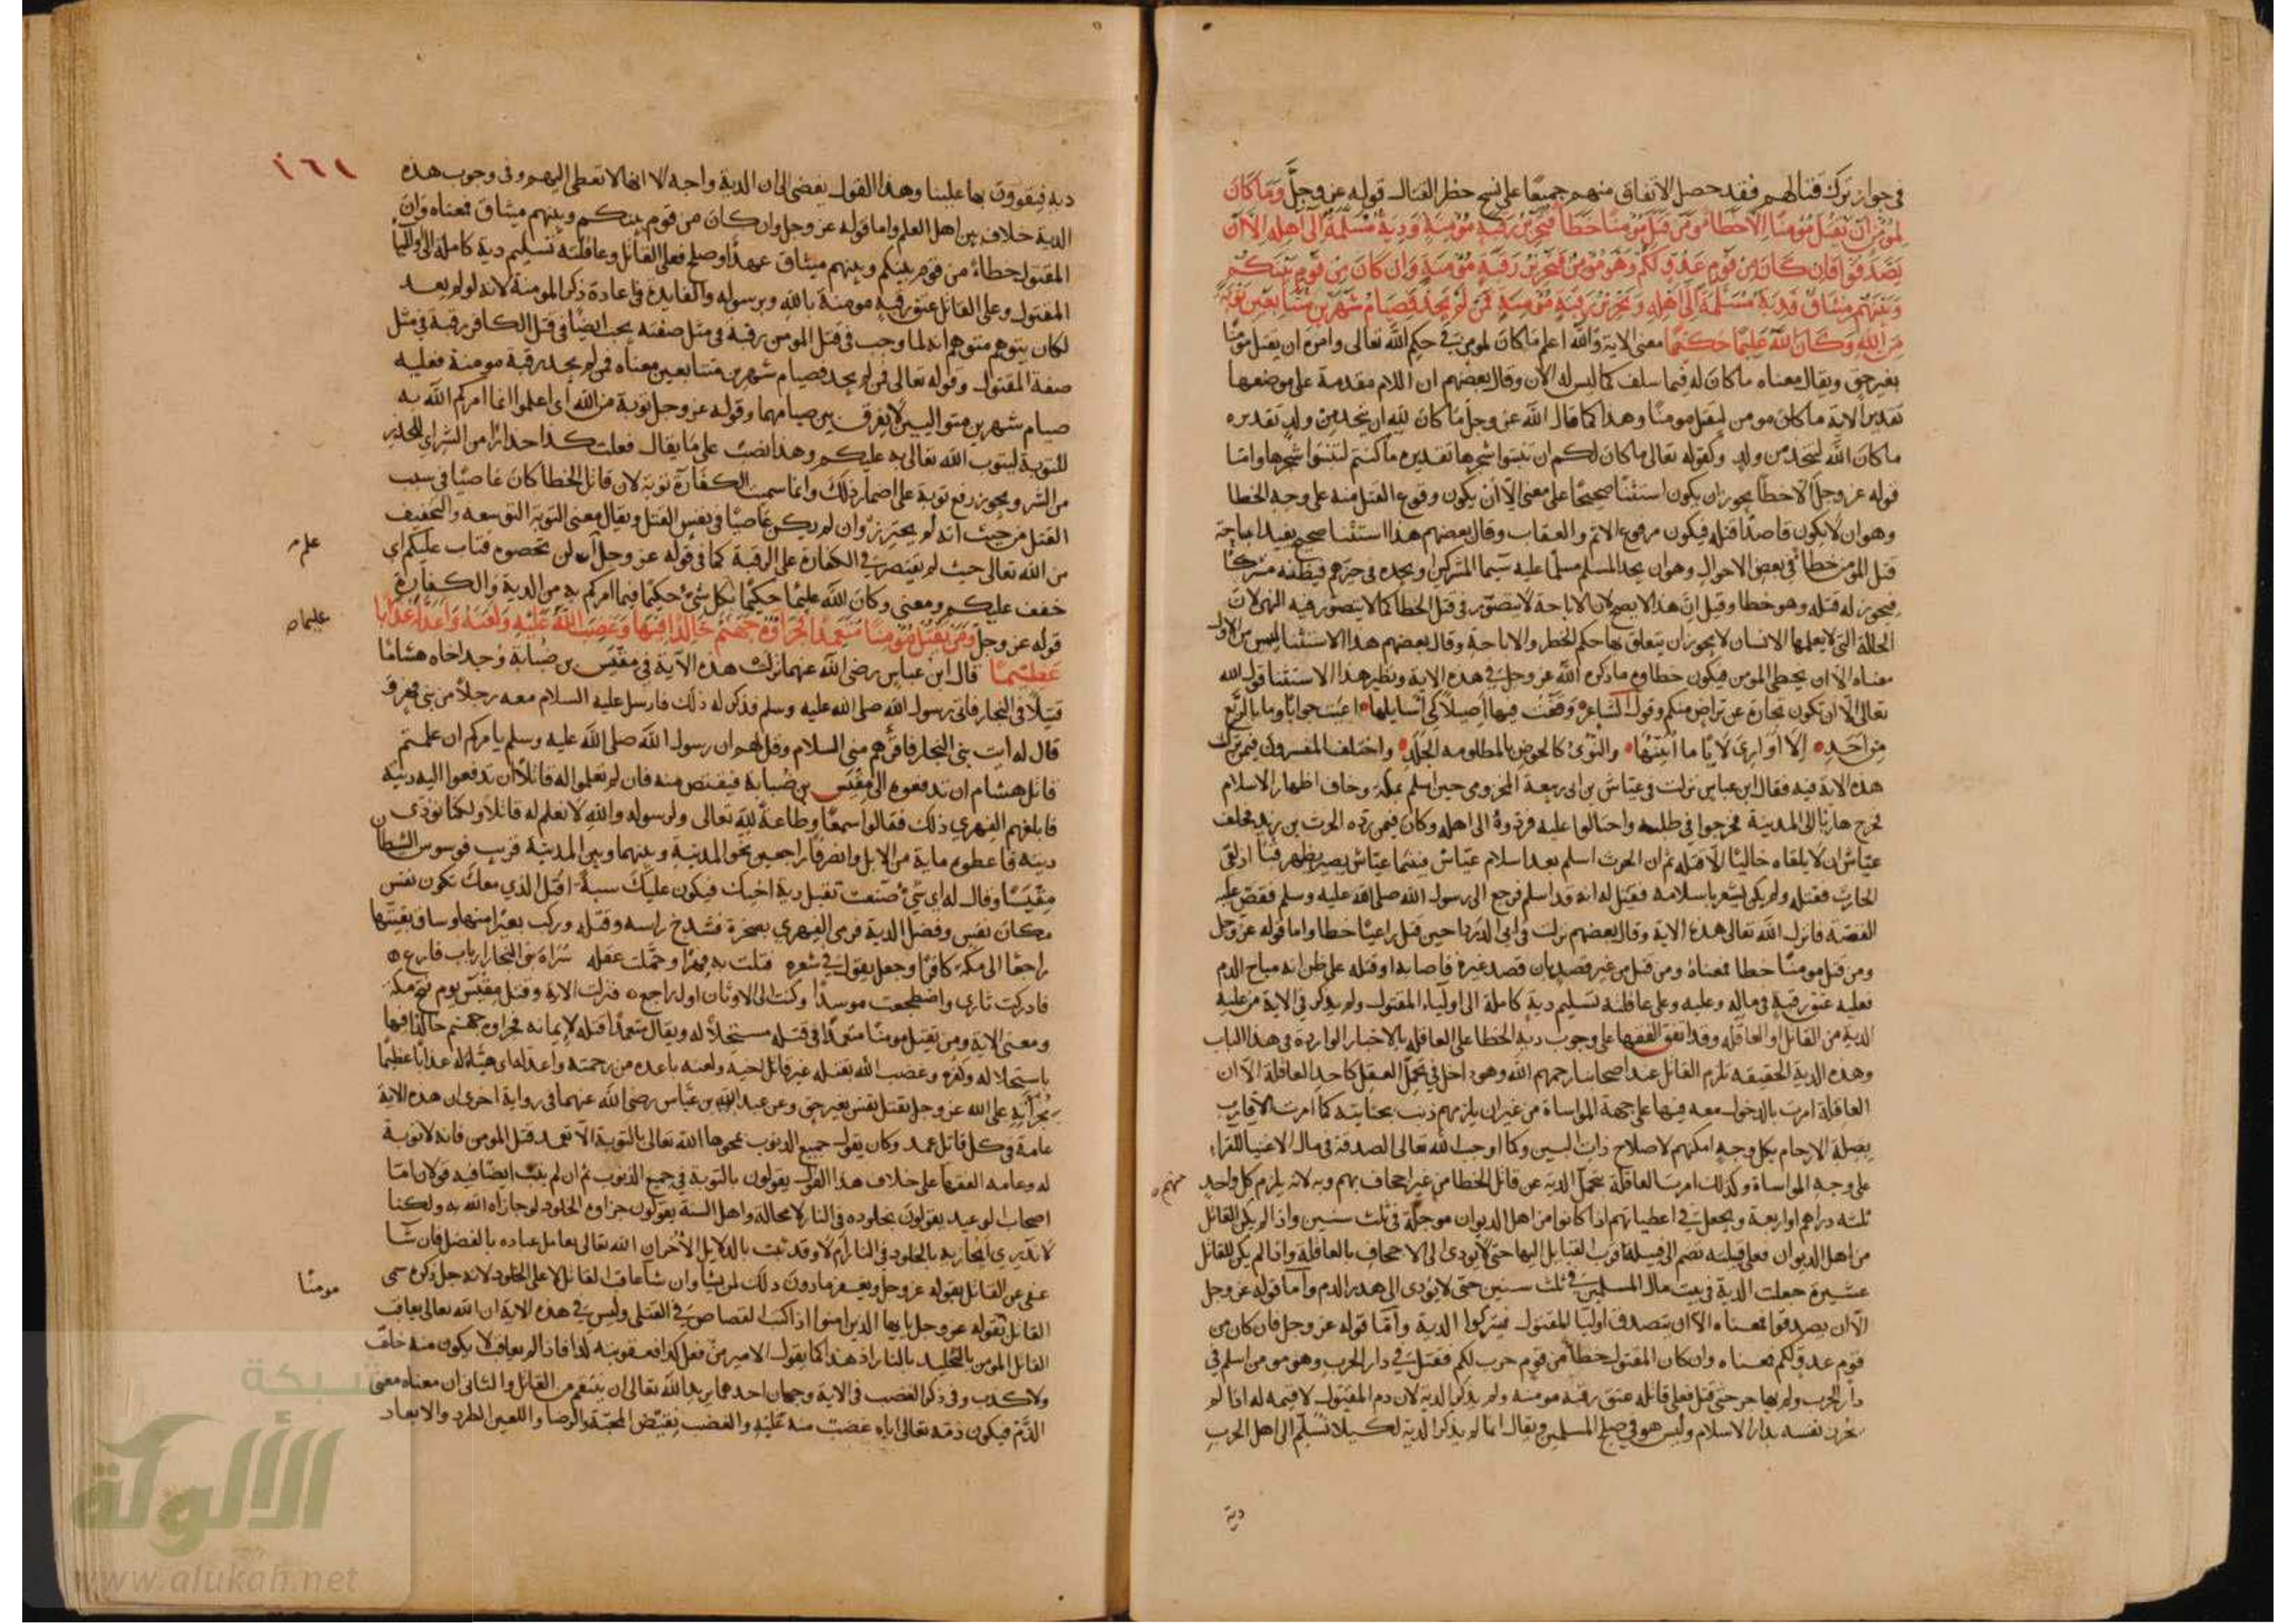 في جواز ترك قتالهم فقد حصل الاتفاق منهم جميعًا على نسخ حظر القتال قوله عز وجلّ وَمَا كَانَ
لِمُؤْمِنٍ أَنْ يَقْتُلَ مُؤْمِنًا إِلَّا خَطَأً وَمَنْ قَتَلَ مُؤْمِنًا خَطَأً فَتَحْرِيرُ رَقَبَةٍ مُؤْمِنَةٍ وَدِيَةٌ مُسَلَّمَةٌ إِلَى أَهْلِهِ إِلَّا أَنْ
يَصَّدَّقُوا فَإِنْ كَانَ مِنْ قَوْمٍ عَدُوٍّ لَكُمْ وَهُوَ مُؤْمِنٌ فَتَحْرِيرُ رَقَبَةٍ مُؤْمِنَةٍ وَإِنْ كَانَ مِنْ قَوْمٍ بَيْنَكُمْ
وَبَيْنَهُمْ مِيثَاقٌ فَدِيَةٌ مُسَلَّمَةٌ إِلَى أَهْلِهِ وَتَحْرِيرُ رَقَبَةٍ مُؤْمِنَةٍ فَمَنْ لَمْ يَجِدْ فَصِيَامُ شَهْرَيْنِ مُتَتَابِعَيْنِ تَوْبَةً
مِنَ اللَّهِ وَكَانَ اللَّهُ عَلِيمًا حَكِيمًا معنى الاية والله اعلم ما كان لمومن في حكم الله تعالى وامره ان يقتل مومنًا
بغير حق ويقال معناه ما كان له فيما سلف كما ليس له الان وقال بعضهم ان اللام مقدمة على موضعها
تقدير الاية ما كان مومن ليقتل مومنًا وهذا كما قال الله عز وجل ما كان لله ان يتخذ من ولد تقديره
ما كان الله ليتخذ من ولد وكقوله تعالى ما كان لكم ان تنبتوا شجرها تقديره ما كنتم لتنبتوا شجرها واما
قوله عز وجل الا خطأ يجوز ان يكون استثنًا صحيحًا على معنى الّا أن يكون وقوع القتل منه على وجه الخطا
وهو ان لا يكون قاصدًا قتله فيكون مرفوع الاثم والعقاب وقال بعضهم هذا استثنا صحيح يفيد اباحة
قتل المومن خطأً في بعض الاحوال وهو ان يجد المسلم مسلمًا عليه سيما المشركين او يجده في حزبهم فيظنه مشركًا
فيجوز له قتله وهو خطا وقيل انّ هذا لا يصح لان الاباحة لا يتصور في قتل الخطا كما لا يتصور فيه النهي لان
الحالة التي لا يعلمها الانسان لا يجوز ان يتعلق بها حكم الحظر والاباحة وقال بعضهم هذا الاستثنا ليس من الاول
معناه الا ان يخطي المومن فيكون خطاوه ما ذكره الله عز وجل في هذه الاية ونظير هذا الاستثنا قول الله
تعالى الّا ان تكون تجارة عن تراض منكم وقول الشاعر وَقَفْتُ فيها أصيلاً كي أسايلها اعيت جوابًا وما بالربع
من احَدِ الا أَوارِيَ لَأيًا ما أبيّنُها والنؤى كالحوض بالمظلومة الجَلَدِ واختلف المفسرون فيمن نزلت
هذه الاية فيه فقال ابن عباس نزلت في عيّاش بن ابي ربيعة المخزومي حين اسلم بمكة وخاف اظهار الاسلام
فخرج هاربًا الى المدينة فخرجوا في طلبه واحتالوا عليه فردّوهُ الى اهله وكان فيمن ردّه الحرث بن زيد فحلف
عيّاش ان لا يلقاه خاليًا الا قتله ثم ان الحرث اسلم بعد اسلام عيّاش فبينما عيّاش يسير بظهر قبا اذ لقى
الحارث فقتله ولم يكن يشعر باسلامه فقيل له انه قد اسلم فرجع الى رسول الله صلى الله عليه وسلم فقصّ عليه
القصّة فانزل الله تعالى هذه الاية وقال بعضهم نزلت في ابي الدردا حين قتل راعيًا خطا واما قوله عز وجل
ومن قتل مومنًا خطا فمعناهُ ومن قتل من غير قصد بان قصد غيره فاصابه او قتله على ظن انه مباح الدم
فعليه عتق رقبة في ماله وعليه وعلى عاقلته تسليم دية كاملة الى اولياء المقتول ولم يذكر في الاية من عليه
الدية من القاتل او العاقلة وقد اتفق الفقها على وجوب دية الخطا على العاقلة بالاخبار الواردة في هذا الباب
وهذه الدية الحقيقة تلزم القاتل عند اصحابنا رحمهم الله وهو داخل في تحمّل العقل كاحد العاقلة الا ان
العاقلة امرت بالدخول معه فيها على جهة المواساة من غير ان يلزمهم ذنب بجنايته كما امرت الاقارب
بصلة الارحام بكل وجه امكنهم لاصلاح ذات البين وكما اوجب الله تعالى الصدقة في مال الاغنيا للفقراء
على وجه المواساة وكذلك امرت العاقلة بتحمل الدية عن قاتل الخطا من غير اجحاف بهم وبه لانه يلزم كل واحد
منهم
ثلثه دراهم او اربعة ويجعل في اعطياتهم اذا كانوا من اهل الديوان موجلة في ثلث سنين واذا لم يكن القاتل
من اهل الديوان فعلى قبيلته تضم الى قبيلته اقرب القبايل اليها حتى لا يودى الى الاجحاف بالعاقلة واذا لم يكن للقاتل
عشيرة جعلت الدية في بيت مال المسلمين في ثلث سنين حتى لا يودى الى هدر الدم وأما قوله عز وجل
الّا ان يصدقوا فمعناه الا ان يتصدق اوليا المقتول فيتركوا الدية وأمّا قوله عز وجل فان كان من
قوم عدوّ لكم فمعناه وان كان المقتول خطأً من قوم حرب لكم فقتل في دار الحرب وهو مومن اسلم في
دار الحرب ولم يهاجر حتى قتل فعلى قاتله عتق رقبه مومنه ولم يذكر الدية لان دم المقتول لا قيمه له اذا لم
يحرز نفسه بدار الاسلام وليس هو في صلح المسلمين ويقال انما لم يذكر الدية لكيلا تُسَلّم الى اهل الحرب
دية
٢٦١
دية فيقوون بها علينا وهذا القول يفضى الى ان الدية واجبه الا انها لا تعطى اليهم وفى وجوب هذه
الدية خلاف بين اهل العلم واما قوله عز وجل وان كان من قوم بينكم وبينهم ميثاق فمعناه وان
المقتول خطاءً من قوم بينكم وبينهم ميثاق عهدًا وصلح فعلى القاتل وعاقلته تسليم دية كاملة الى اولياء
المقتول وعلى القاتل عتق رقبة مومنة بالله وبرسوله والفايدة في اعادة ذكر المومنة لانه لو لم يعد
لكان يتوهم متوهم انه لما وجب في قتل المومن رقبه في مثل صفته يجب ايضًا في قتل الكافر رقبة في مثل
صفة المقتول وقوله تعالى فمن لم يجد فصيام شهرين متتابعين معناه فمن لم يجد رقبة مومنة فعليه
صيام شهرين متواليين لا يفرق بين صيامهما وقوله عز وجل توبة من الله اى اعلموا انما امركم الله به
للتوبة ليتوب الله تعالى به عليكم وهذا نصب على ما يقال فعلت كذا حذارًا من الشر اي للحذر
من الشر ويجوز رفع توبة على اضمار ذلك وانما سميت الكفّارة توبة لان قاتل الخطا كان عاصيًا في سبب
القتل من حيث انه لم يحترز وان لم يكن عاصيًا في نفس القتل ويقال معنى التوبة التوسعة والتخفيف
من الله تعالى حيث لم يقتصر في الكفارة على الرقبة كما في قوله عز وجل ان لن تحصوه فتاب عليكم اي
علم
خفف عليكم ومعنى وكان الله عليمًا حكيمًا بكل شئ حكيمًا فيما امركم به من الدية والكفارة
عليما
قوله عز وجل وَمَنْ يَقْتُلْ مُؤْمِنًا مُتَعَمِّدًا فَجَزَاؤُهُ جَهَنَّمُ خَالِدًا فِيهَا وَغَضِبَ اللَّهُ عَلَيْهِ وَلَعَنَهُ وَأَعَدَّ لَهُ عَذَابًا
عَظِيمًا قال ابن عباس رضى الله عنهما نزلت هذه الآية في مقْيَس بن ضُبابة وجد اخاه هشامًا
قتيلًا في النجار فاتى رسول الله صلى الله عليه وسلم فذكر له ذلك فارسل عليه السلام معه رجلًا من بني فهر و
قال له ايت بني النجار فاقرأهم مني السلام وقل لهم ان رسول الله صلى الله عليه وسلم يامركم ان علمتم
قاتل هشام ان تدفعوه الى مِقْيَس بن ضُبابة فيقتص منه فان لم تعلموا له قاتلًا ان تدفعوا اليه ديته
فابلغهم الفهري ذلك فقالوا سمعًا وطاعةً لله تعالى ولرسوله والله لا نعلم له قاتلًا ولكنا نودى
ديته فاعطوه ماية من الابل وانصرفا راجعين نحو المدينة وبينهما وبين المدينة قريب فوسوس الشيطان
مِقْيَسًا وقال له اي شئ صنعت تقبل دية اخيك فيكون عليك سبةً اقتل الذي معك تكون نفس
مكان نفس وفضل الدية فرمى الفهري بصخرة فشدخ راسه وقتله وركب بعيرًا منها وساق بقيتها
راجعًا الى مكة كافرًا وجعل يقول في شعره قتلت به فهرًا وحمّلت عقله سَراة بني النجار ارباب فارع
فادركت ثاري واضطجعت موسدًا وكنت الى الاوثان اول راجع فنزلت الاية وقتل مِقْيَس يوم فتح مكة
ومعنى الاية ومن يقتل مومنًا متعمدًا في قتله مستحلًّا له ويقال متعمدًا قتله لإيمانه فجزاوه جهنم خالدًا فيها
باستحلاله وكفره وغضب الله بقتله غير قاتل اخيه ولعنه باعده من رحمته واعد له اي هيّا له عذابًا عظيمًا
بجُرأته على الله عز وجل بقتل نفس بغير حق وعن عبد الله بن عبّاس رضى الله عنهما في رواية اخرى ان هذه الاية
عامة في كل قاتل عمد وكان يقول جميع الذنوب يمحوها الله تعالى بالتوبة الّا تعمد قتل المومن فانه لا توبة
له وعامه الفقها على خلاف هذا القول يقولون بالتوبة في جميع الذنوب ثم ان لم يتب ايضًا فيه قولان امّا
اصحاب الوعيد يقولون بخلوده في النار لا محالة واهل السنة يقولون جزاوه الخلود لو جازاه الله به ولكنا
لا ندري ايجازيه بالخلود في النار ام لا وقد ثبت بالدلايل الاُخَر ان الله تعالى يعامل عباده بالفضل فان شا
عفى عن القاتل بقوله عز وجل ويغفر ما دون ذلك لمن يشا وان شا عاقب القاتل لا على الخلود لانه جل ذكره سمى
مومنًا
القاتل بقوله عز وجل يايها الذين امنوا اذا كتب القصاص في القتلى وليس في هذه الاية ان الله تعالى يعاقب
القاتل المومن بالتخليد بالنار اذ هذا كما يقول الامير من فعل كذا فعقوبته كذا فاذا لم يعاقب لا يكون منه خلف
ولا كذب وفي ذكر الغضب في الاية وجهان احدهما يريد الله تعالى ان ينتقم من القاتل والثاني ان معناه معنى
الذّم فيكون ذمّه تعالى اياه غضبت منه عليه والغضب نقيض المحبّة والرضا واللعن الطرد والابعاد
شبكة
الألوكة
www.alukah.net